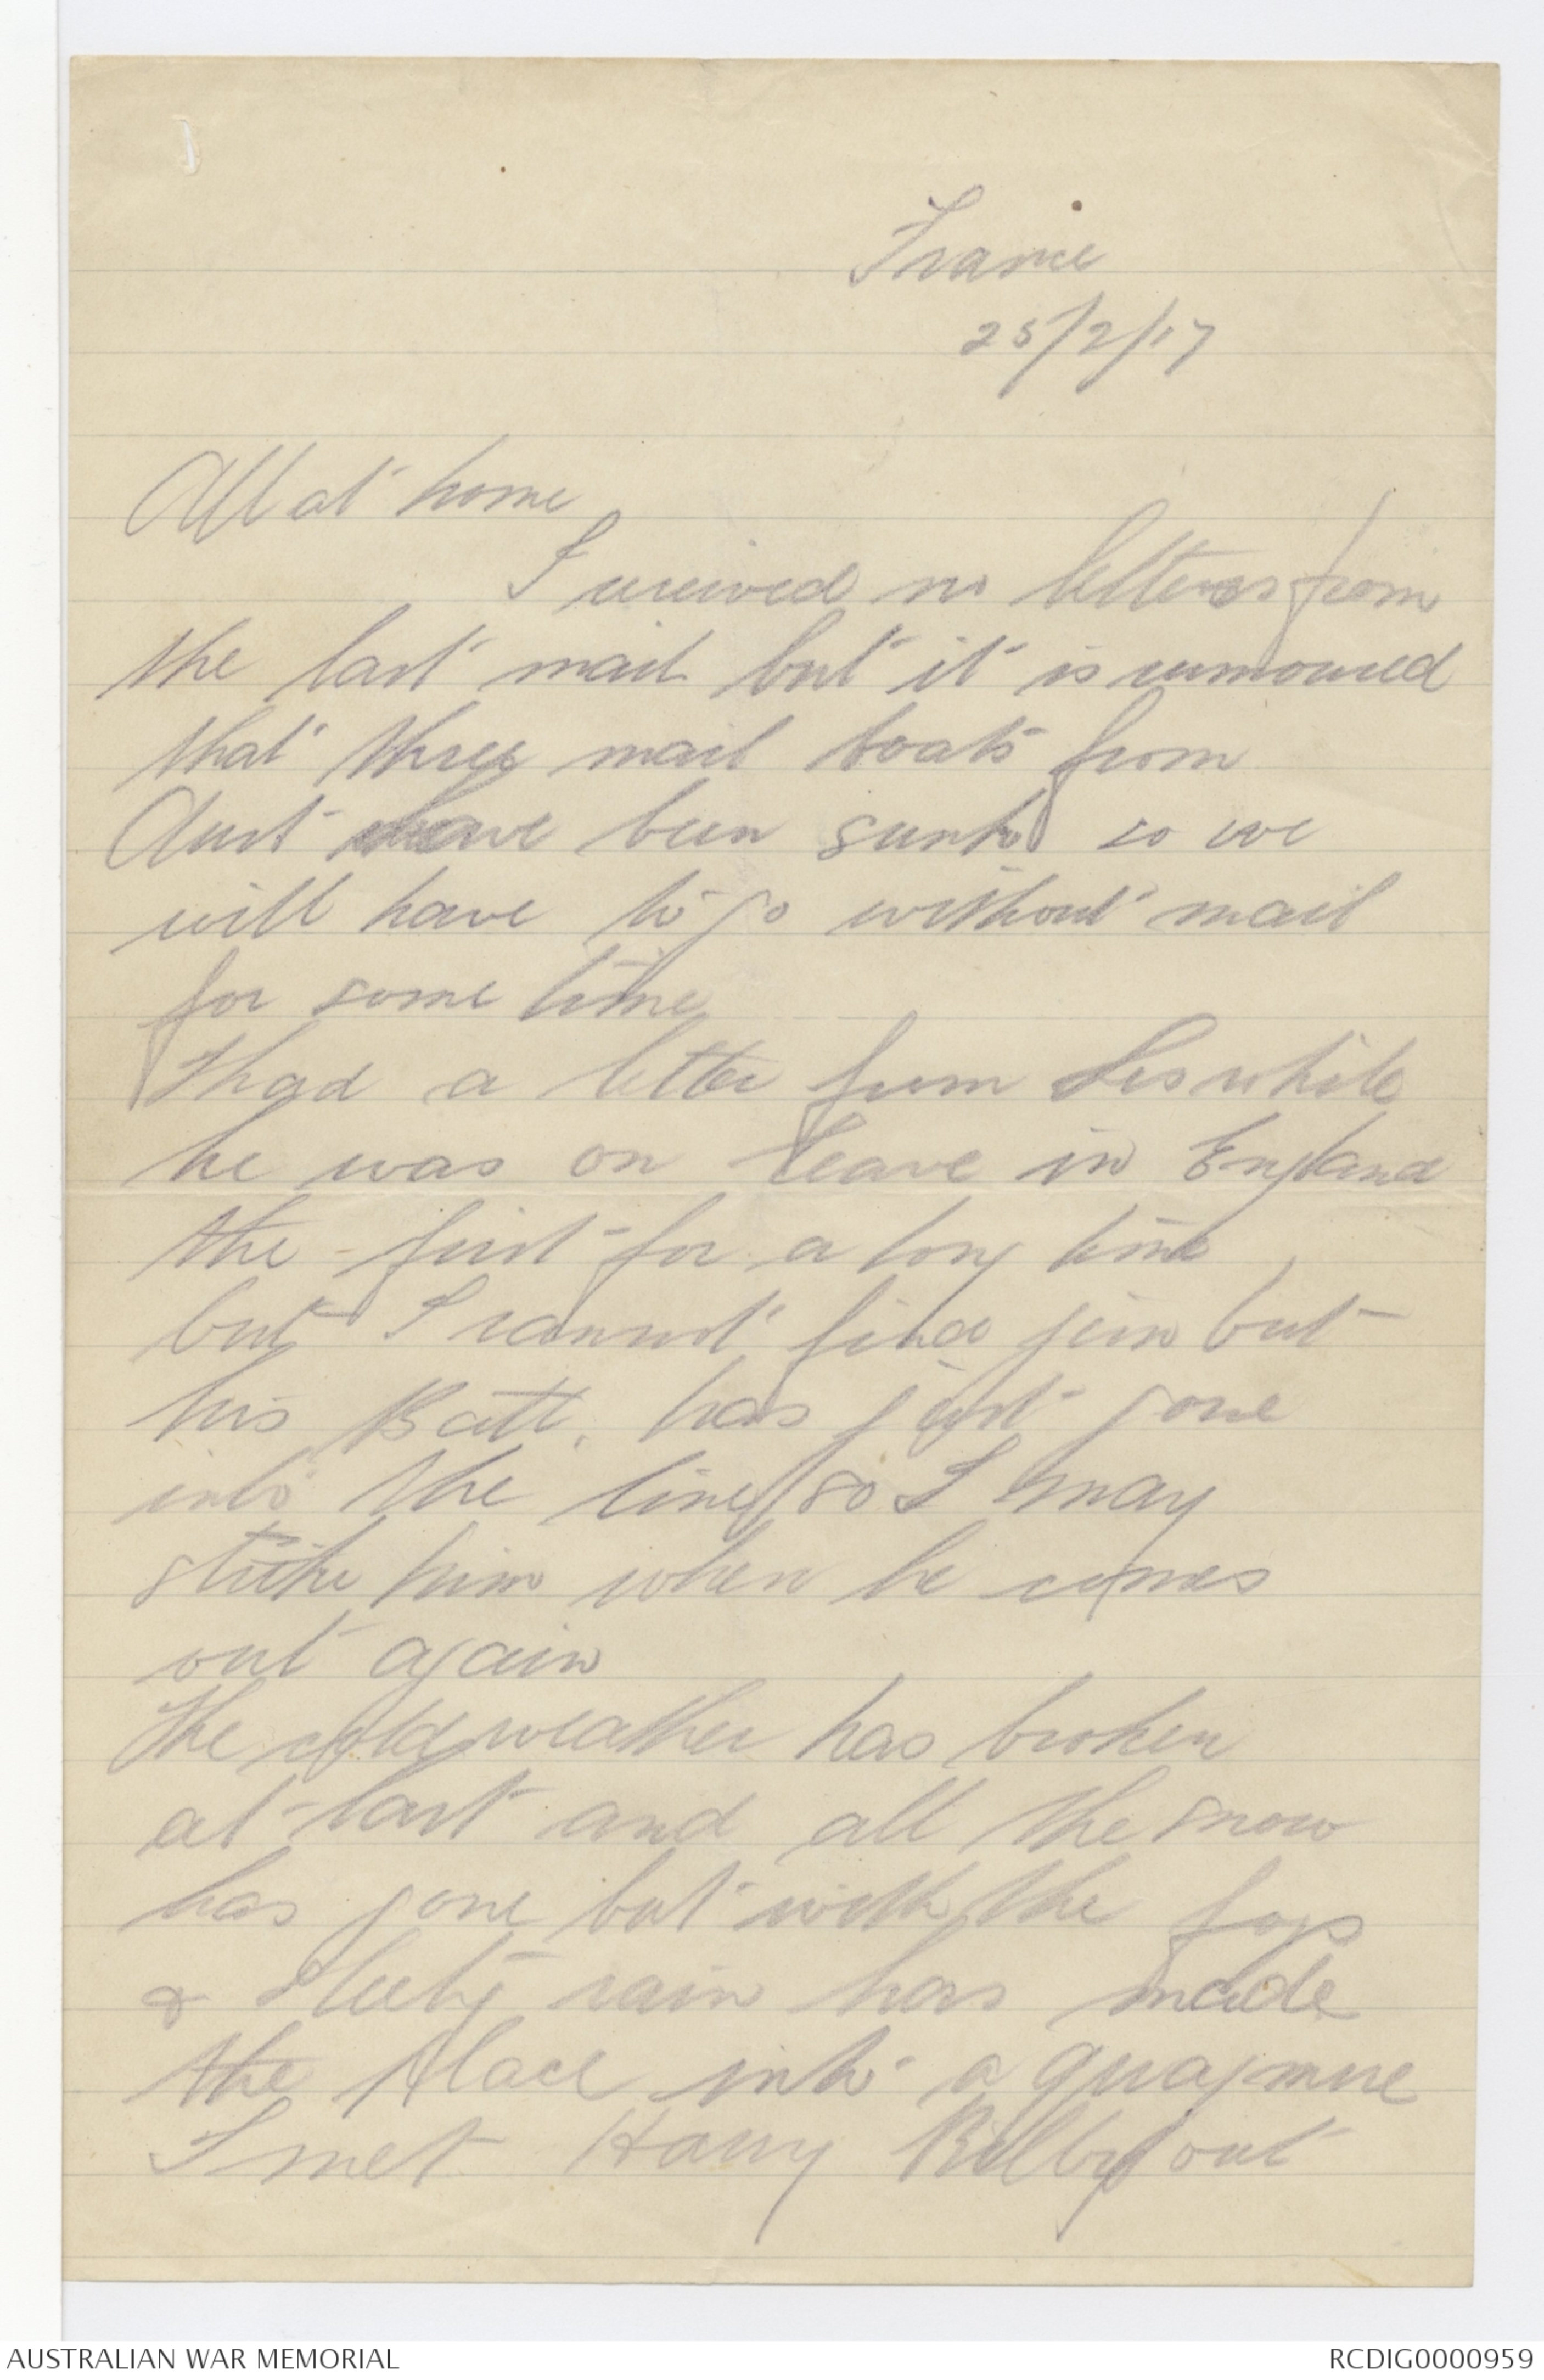 France
25/2/17
All at home
I received no letters from
the last mail but it is rumoured
that three mail boats from
Aust have been sunk so we
will have to go without mail
for some time
I had a letter from Les while
he was on leave in England
the first for a long time
but I cannot find him but
his Batt. has just gone
into the line so I may
strike him when he comes
out again
The cold weather has broken
at last and all the snow
has gone but with the fogs
& sleety rain has made
the place into a quagmire
I met Harry Bilby out
AUSTRALIAN WAR MEMORIAL
RCDIG0000959